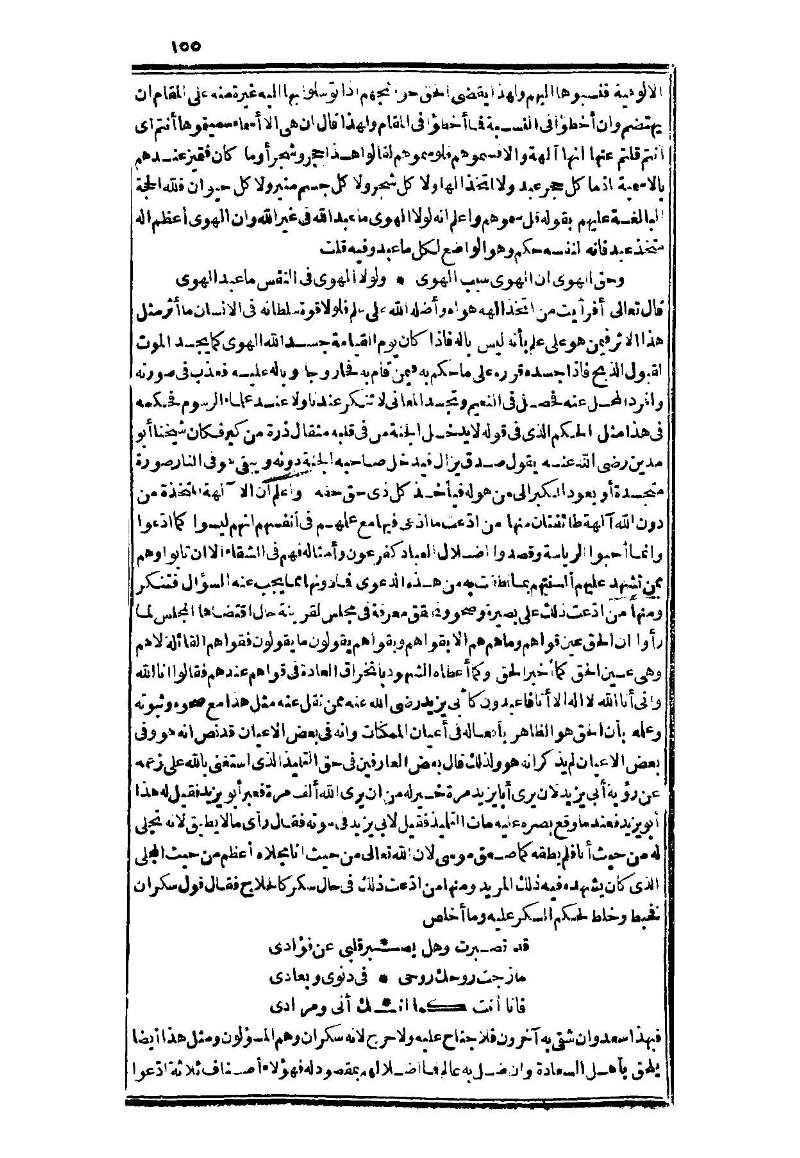 ١٥٥
الالوهية فنسبوها اليهم ولهذا يقضى الحق حوائجهم اذا توسلوا بها اليه غيرة منه على المقام ان
يهتضم وان أخطؤا فى النسبة فما أخطؤا فى المقام ولهذا قال ان هى الا أسماء سميتموها أنتم أى
أنتم قلتم عنها انها آلهة والا فسموهم فلو سموهم لقالوا هذا حجر وشجر أو ما كان فتميز عندهم
بالاسمية اذ ما كل حجر عبد ولا اتخذ الها ولا كل شجر ولا كل جسم منير ولا كل حيوان فلله الحجة
البالغة عليهم بقوله قل سموهم واعلم انه لولا الهوى ما عبد الله فى غير الله وان الهوى أعظم اله
متخذ عبد فانه لنفسه حكم وهو الواضع لكل ما عبد وفيه قلت
وحق الهوى ان الهوى سبب الهوى * ولولا الهوى فى النفس ما عبد الهوى
قال تعالى أفرأيت من اتخذ الهه هواه وأضله الله على علم فلولا قوة سلطانه فى الانسان ما أثر مثل
هذا الاثر فيمن هو على علم بأنه ليس باله فاذا كان يوم القيامة جسد الله الهوى كما يجسد الموت
لقبول الذبح فاذا جسده قرره على ما حكم به فيمن قام به فحار وجا وباله عليه فعذب فى صورته
وافرد المحل عنه فحصل فى النعيم وتجسد المعانى لا تنكر عندنا ولا عند علماء الرسوم فحكمه
فى هذا مثل الحكم الذى فى قوله لا يدخل الجنة من فى قلبه مثقال ذرة من كبر فكان شيخنا أبو
مدين رضى الله عنه يقول صدق يزال فيدخل صاحبه الجنة دونه ويبقى هو فى النار صورة
متجسدة أو يعود الكبر الى من هو له فيأخذ كل ذى حق حقه واعلم أن الآلهة المتخذة من
دون الله آلهة طائفتان منها من ادعت ما ادعى فيها مع علمهم فى أنفسهم انهم ليسوا كما ادعوا
وانما أحبوا الرياسة وقصدوا اضلال العباد كفرعون وأمثاله فهم فى الشقاء الا ان تابوا وهم
ممن تشهد عليهم ألسنتهم بما نطقت به من هذه الدعوى فما دونها مما يجب عنه السؤال فتنكر
ومنها من ادعت ذلك على بصيرة وصحو وتحقق معرفة فى مجلس لقرينة حال اقتضاها المجلس لما
رأوا ان الحق عين قواهم وما هم هم الا بقواهم وبقواهم يقولون ما يقولون فقواهم القائلة لا هم
وهى عين الحق كما أخبر الحق وكما أعطاه الشهود بانخراق العادة فى قواهم عندهم فقالوا انا الله
وانى أنا الله لا اله الا أنا فاعبدون كأبى يزيد رضى الله عنه ممن نقل عنه مثل هذا مع صحوه وثبوته
وعلمه بأن الحق هو الظاهر بأفعاله فى أعيان الممكنات وانه فى بعض الاعيان قد نص انه هو وفى
بعض الاعيان لم يذكر انه هو ولذلك قال بعض العارفين فى حق التلميذ الذى استغنى بالله على زعمه
عن رؤية أبى يزيد لان يرى أبا يزيد مرة خير له من ان يرى الله ألف مرة فعبر أبو يزيد فقيل له هذا
أبو يزيد فعندما وقع بصره عليه مات التلميذ فقيل لابى يزيد فى موته فقال رأى ما لا يطيق لانه تجلى
له من حيث أنا فلم يطقه كما صعق موسى لان الله تعالى من حيث انا مجلاه أعظم من حيث المجلى
الذى كان يشهده فيه ذلك المريد ومنها من ادعت ذلك فى حال سكر كالحلاج فقال قول سكران
فخبط وخلط لحكم السكر عليه وما أخلص
قد تصبرت وهل يصـ*ـبر قلبى عن فؤادى
مازجت روحك روحى * فى دنوى وبعادى
فانا أنت كما انـ*ـك أنى ومرادى
فبهذا سعد وان شقى به آخرون فلا جناح عليه ولا حرج لانه سكران وهم المسؤلون ومثل هذا أيضا
يلحق بأهل السعادة وان ضل به عالم فما اضلالهم بمقصود له فهؤلاء أصناف ثلاثة ادعوا